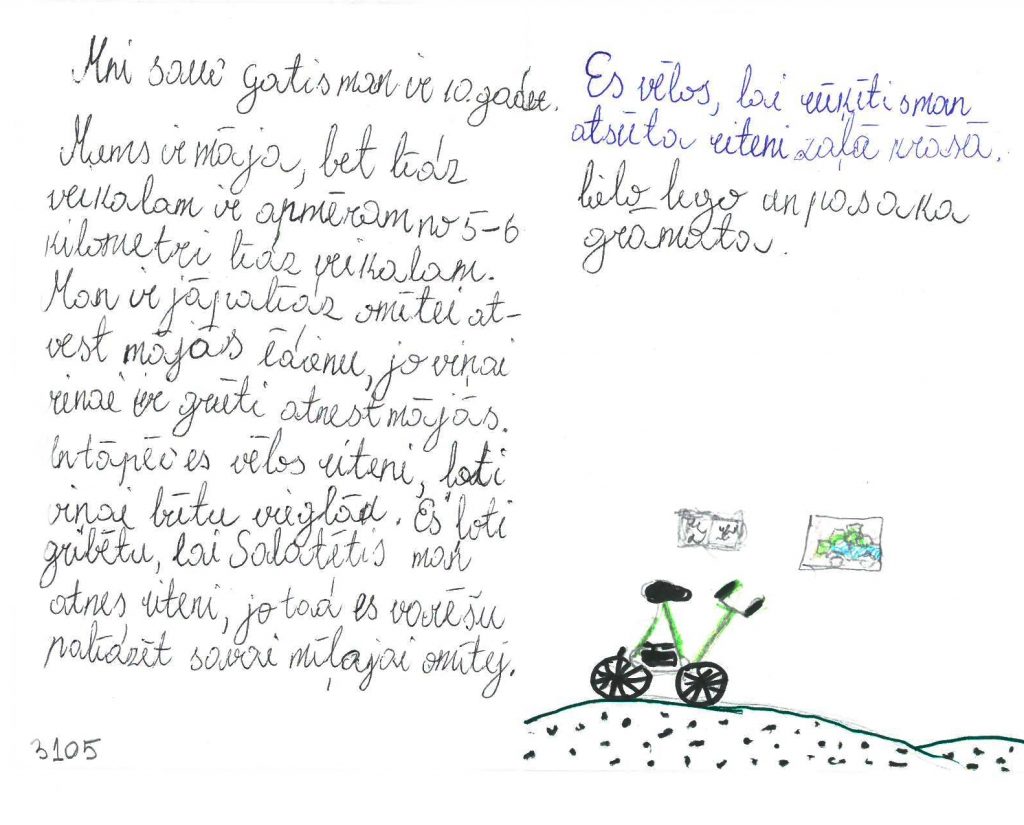 Mni sauc gatis man ir 10.gadu.
Mums ir māja, bet līdz
veikalam ir apmēram no 5-6
kilometri līdz veikalam.
Man ir jāpalīdz omītei at-
vest mājās ēdienu, jo viņai
vinai ir grūti atnest mājās.
Un tāpēc es vēlos riteni, loti
viņai būtu vieglāk. Es loti
gribētu, lai Salatētis man
atnes riteni, jo tad es varēšu
palīdzēt savai mīļajai omītej.
3105
Es vēlos, lai rūķītis man
atsūta riteni zaļā krāsā.
lielo lego un pasaka
grāmata.